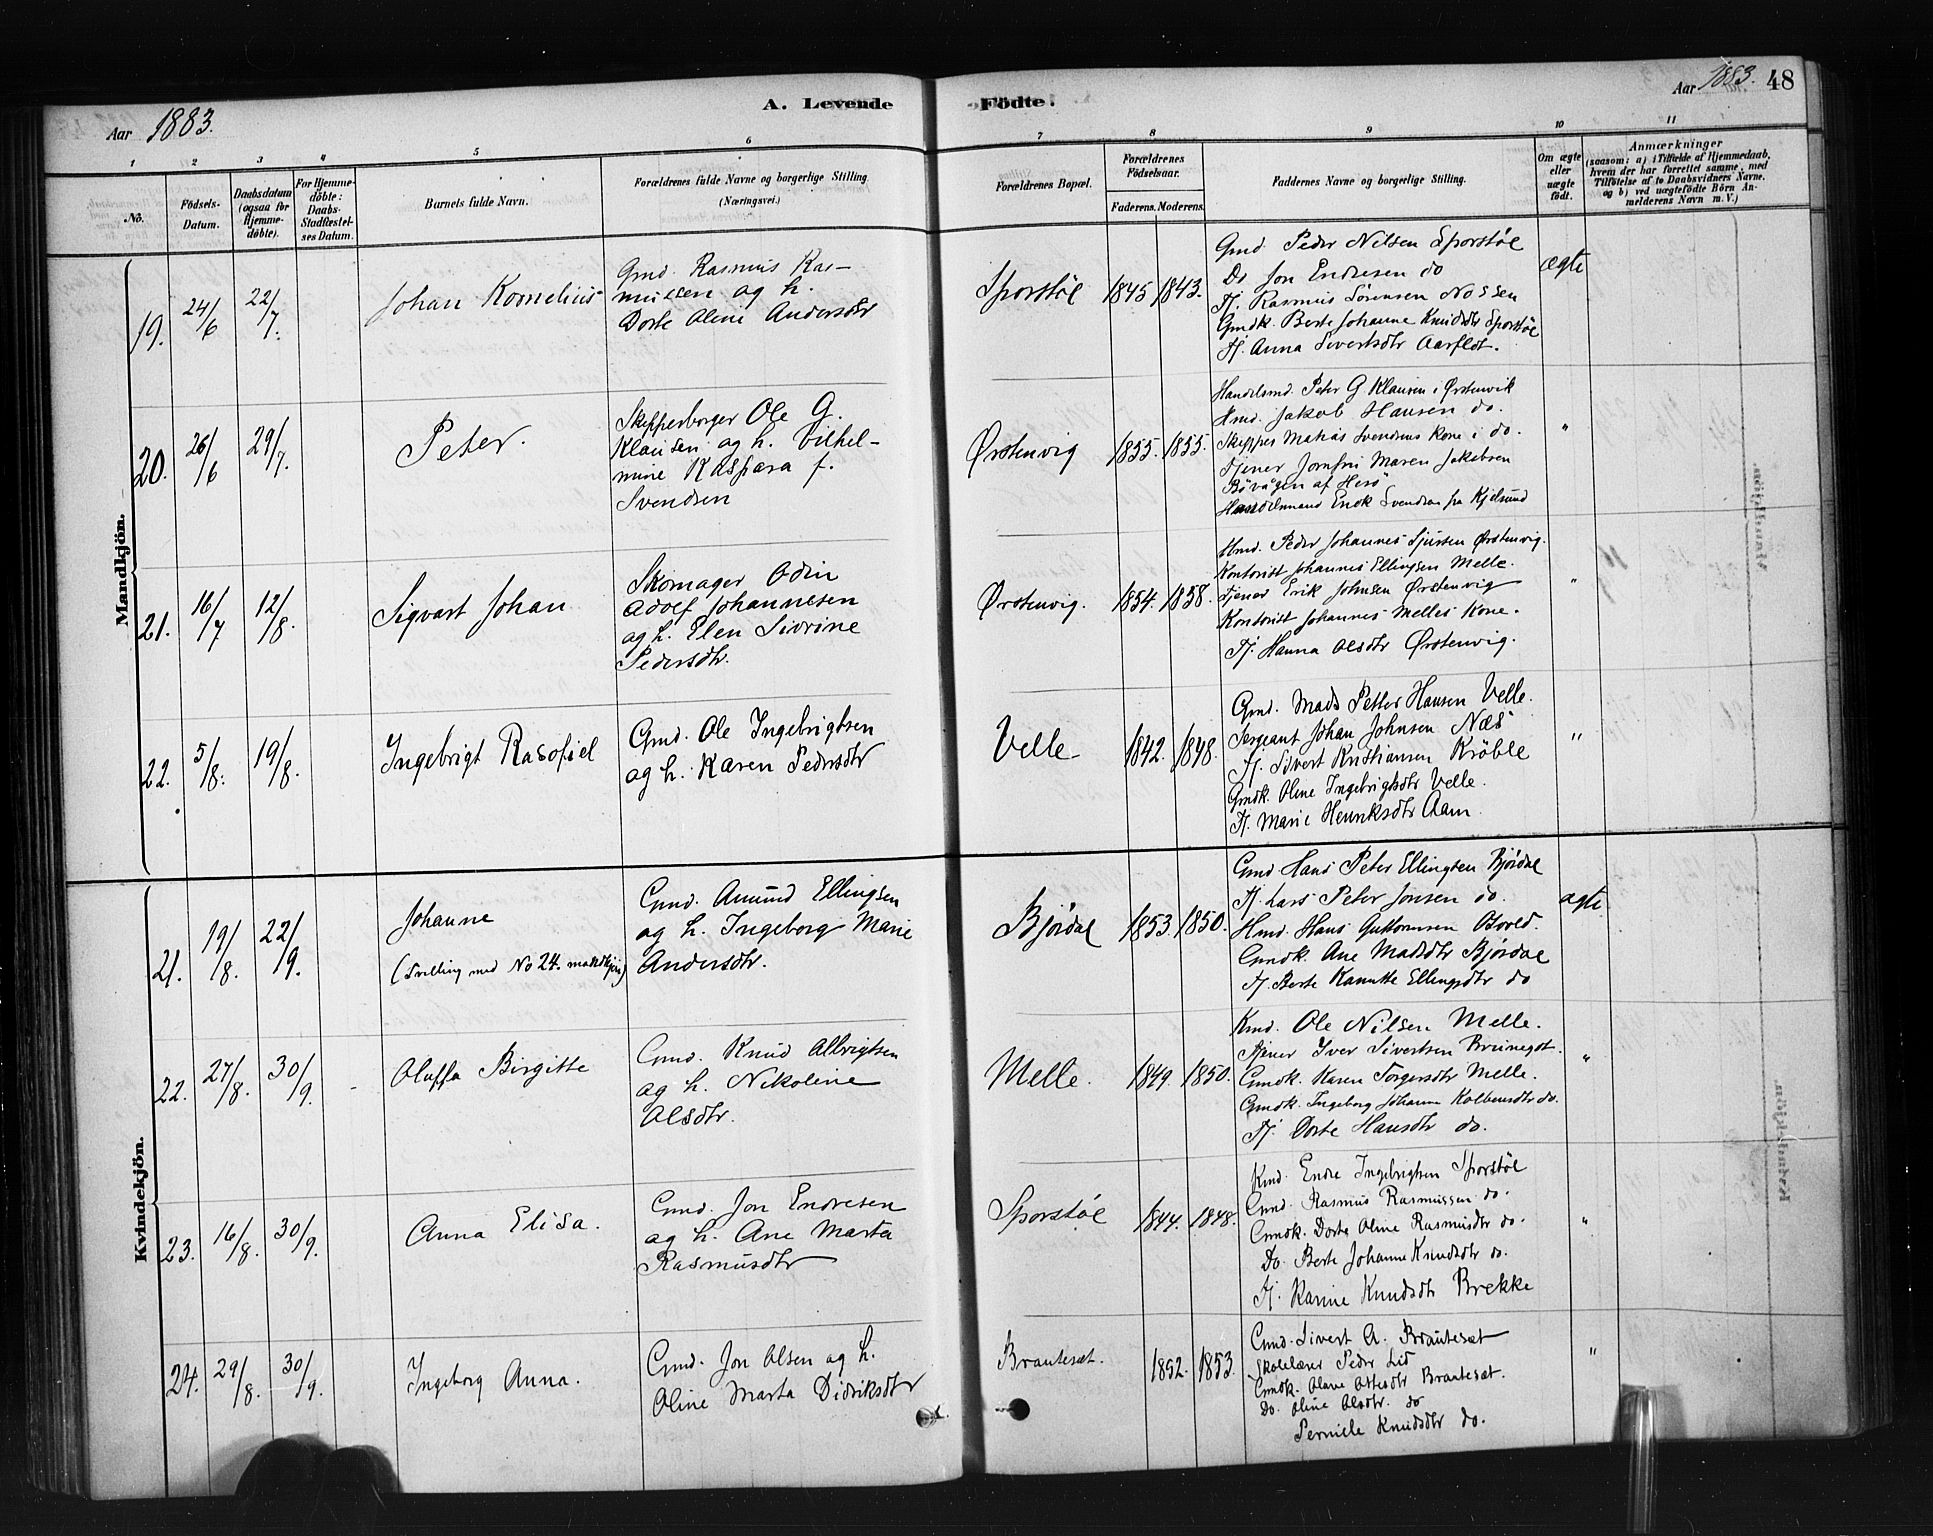 Aar 1883.
A. Levende
Födte.
Aar 1883. 48
1 2 3 4 5 6 7 8 9 10 11
No.
Födsels-
Datum.
Daabsdatum
(ogsaa for
Hjemme-
döbte).
For Hjemme-
döbte:
Daabs-
Stadfæstel-
ses Datum.
Barnets fulde Navn.
Forældrenes fulde Navne og borgerlige Stilling
(Næringsvei.)
Forældrenes Bopæl.
Forældrenes
Födselsaar.
Faderens. Moderens.
Faddernes Navne og borgerlige Stilling.
Om ægte
eller
uægte
födt.
Anmærkninger
(saasom: a) i Tilfælde af Hjemmedaab,
hvem der har forrettet samme, med
Tilföielse af to Daabsvidners Navne.
og b) ved uægtefödte Börn An-
melderens Navn m. V.)
Mandkjön.
19. 24/6 22/7. Johan Kornelius
Gmd. Rasmus Ras-
mussen og h.
Dorte Oline Andersdtr
Sporstøl 1845 1843.
Gmd. Peder Nilsen Sporstøl
Do Jon Endresen do
Tj. Rasmus Sørensen Nossen
Gmdk. Berte Johanne Knudsdtr Sporstøl
Tj. Anna Sivertsdtr Aarflot.
ægte
20. 26/6 29/7. Peter.
Skipperborger Ole G.
Klausen og h. Vilhel-
mine Kaspara f.
Svendsen
Ørstenvig 1855. 1855.
Handelsmd. Peter G Klausen i Ørstenvik
Hmd. Jakob Hansen do.
Skipper Matias Svendsens Kone i do.
Tjener Jomfru Maren Jakobsen
Bövågen af Herö
Handelsmand Enok Svendsen fra Kjelsund
"
21. 16/7 12/8. Sigvart Johan
Skomager Odin
Adolf Johannesen
og h. Elen Sivrine
Pedersdtr.
Ørstenvig. 1854. 1858.
Hmd. Peder Johannes Sjursen Ørstenvig.
Kontorist Johannes Ellingsen Melle.
Tjener Erik Johnsen Ørstenvig
Kontorist Johannes Melles Kone.
Tj. Hanna Olsdtr Ørstenvig.
"
22. 5/8. 19/8. Ingebrigt Rasofiel
Gmd. Ole Ingebrigtsen
og h. Karen Pedersdtr
Velle 1842. 1848.
Gmd. Mads Petter Hansen Velle.
Sergeant Johan Johnsen Næs
Tj. Sivert Kristiansen Kröble
Gmdk. Oline Ingebrigtsdtr Velle.
Tj. Marie Henriksdtr Aam.
"
Kvindekjön.
21. 19/8. 22/9. Johanne
(Tvilling med No 24. mandkjön)
Gmd. Amund Ellingsen
og h. Ingeborg Marie
Andersdtr.
Bjørdal 1853. 1850.
Gmd Hans Peter Ellingsen Bjørdal
Tj. Lars Peter Jonsen do.
Hmd. Hans Guttormsen Osvold.
Gmdk. Ane Madsdtr Bjørdal
Tj. Berte Kanutte Ellingsdtr do
ægte
22. 27/8. 30/9. Oluffa Birgitte
Gmd. Knud Albrigtsen
og h. Nikoline
Olsdtr.
Melle. 1849. 1850.
Kmd. Ole Nilsen Melle.
Tjener Iver Sivertsen Brunegot.
Gmdk. Karen Torgersdtr Melle.
Gmdk. Ingeborg Johanne Kolbensdtr do.
Tj. Dorte Hansdtr do.
"
23. 16/8. 30/9. Anna Elisa.
Gmd. Jon Endresen
og h. Ane Marta
Rasmusdtr
Sporstøl 1844. 1848.
Kmd. Endre Ingebrigtsen Sporstøl
Gmd. Rasmus Rasmussen do.
Gmdk. Dorte Oline Rasmusdtr do.
Do. Berte Johanne Knudsdtr do.
Tj. Karine Knudsdtr Brekke
"
24. 29/8. 30/9. Ingeborg Anna.
Gmd. Jon Olsen og h.
Oline Marta Didriksdtr
Brautesæt. 1852. 1853.
Gmd. Sivert A. Brautesæt
Skolelærer Peder Lid
Gmdk. Olave Ottesdtr Brautesæt.
Do. Oline Olsdtr. do
Pernille Knudsdtr do.
"